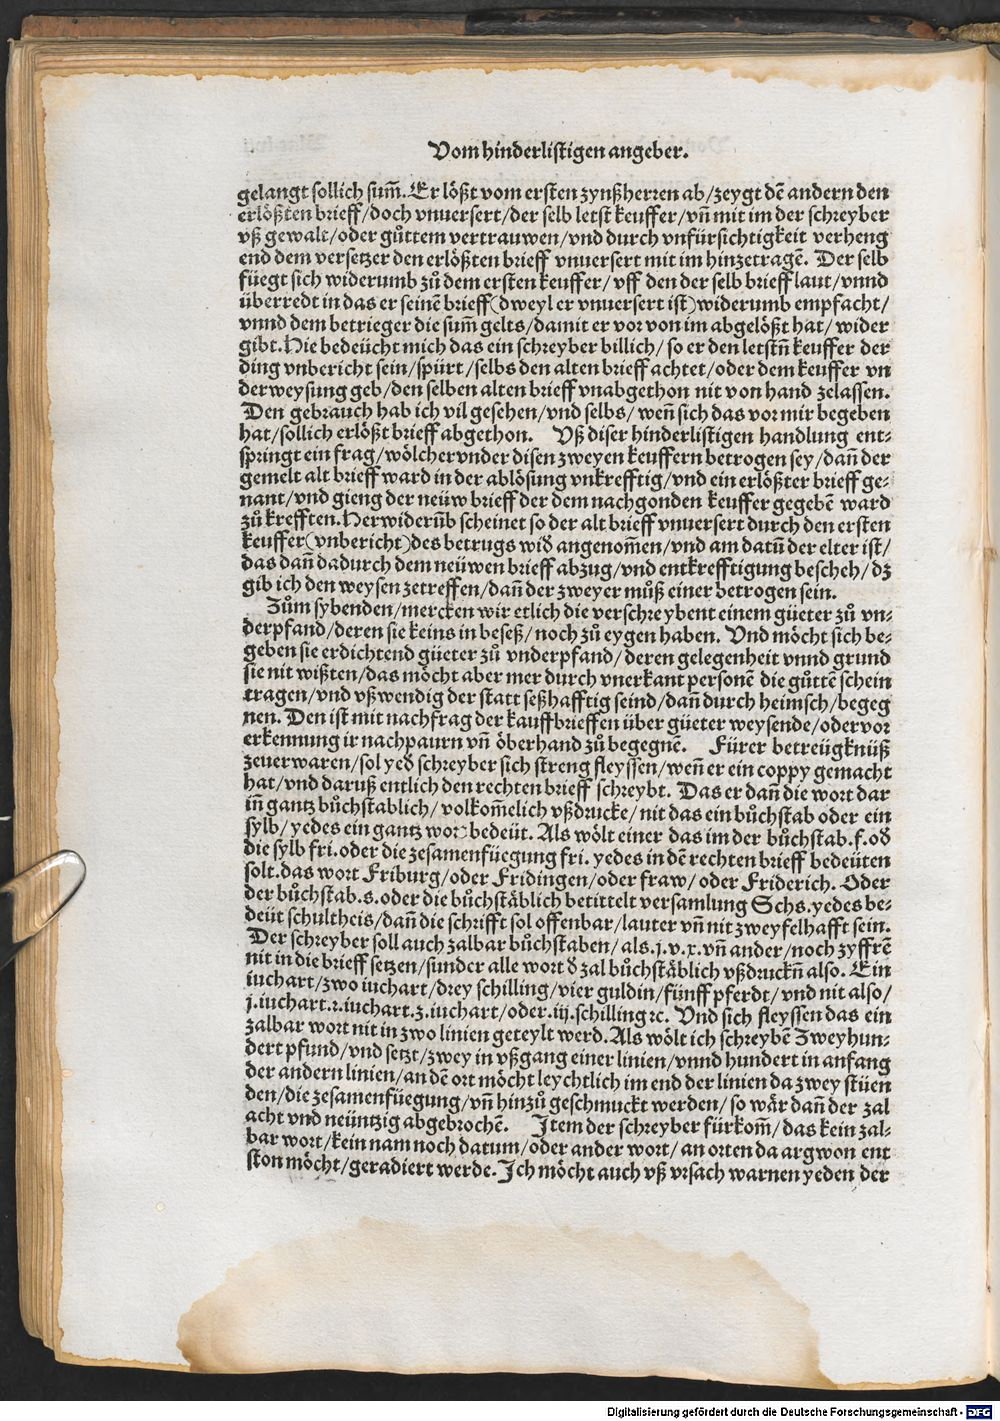 Vom hinderlistigen angeber.
gelangt sollich sum̃. Er lößt vom ersten zynßherren ab/zeygt dē andern den
erlößten brieff/doch vnuersert/der selb letst keuffer/vñ mit im der schreyber
vß gewalt/oder gůttem vertrauwen/vnd durch vnfürsichtigkeit verheng
end dem versetzer den erlößten brieff vnuersert mit im hinzetragē. Der selb
füegt sich widerumb zů dem ersten keuffer/vff den der selb brieff laut/vnnd
überredt in das er seinē brieff(dweyl er vnuersert ist)widerumb empfacht/
vnnd dem betrieger die sum̃ gelts/damit er vor von im abgelößt hat/wider
gibt. Hie bedeücht mich das ein schreyber billich/so er den letstñ keuffer der
ding vnbericht sein/spürt/selbs den alten brieff achtet/oder dem keuffer vn
derweysung geb/den selben alten brieff vnabgethon nit von hand zelassen.
Den gebrauch hab ich vil gesehen/vnd selbs/weñ sich das vor mir begeben
hat/sollich erlößt brieff abgethon. Vß diser hinderlistigen handlung ent⸗
springt ein frag/wölcher vnder disen zweyen keuffern betrogen sey/dañ der
gemelt alt brieff ward in der ablösung vnkrefftig/vnd ein erlößter brieff ge⸗
nant/vnd gieng der neüw brieff der dem nachgonden keuffer gegebē ward
zů krefften. Herwiderūb scheinet so der alt brieff vnuersert durch den ersten
keuffer(vnbericht)des betrugs wid̾ angenom̃en/vnd am datū der elter ist/
das dañ dadurch dem neüwen brieff abzug/vnd entkrefftigung bescheh/dz
gib ich den weysen zetreffen/dañ der zweyer můß einer betrogen sein.
Zům sybenden/mercken wir etlich die verschreybent einem güeter zů vn⸗
derpfand/deren sie keins in beseß/noch zů eygen haben. Vnd möcht sich be⸗
geben sie erdichtend güeter zů vnderpfand/deren gelegenheit vnnd grund
sie nit wißten/das möcht aber mer durch vnerkant personē die gůttē schein
tragen/vnd vßwendig der statt seßhafftig seind/dañ durch heimsch/begeg
nen. Den ist mit nachfrag der kauffbrieffen über güeter weysende/oder vor
erkennung ir nachpaurn vñ öberhand zů begegnē. Fürer betreügknüß
zeuerwaren/sol yed̾ schreyber sich streng fleyssen/weñ er ein coppy gemacht
hat/vnd daruß entlich den rechten brieff schreybt. Das er dañ die wort dar
iñ gantz bůchstablich/volkom̃elich vßdrucke/nit das ein bůchstab oder ein
sylb/yedes ein gantz wort bedeüt. Als wölt einer das im der bůchstab.f.od̾
die sylb fri.oder die zesamenfüegung fri.yedes in dē rechten brieff bedeüten
solt.das wort Friburg/oder Fridingen/oder fraw/oder Friderich. Oder
der bůchstab.s.oder die bůchstäblich betittelt versamlung Schs.yedes be⸗
deüt schultheis/dañ die schrifft sol offenbar/lauter vñ nit zweyfelhafft sein.
Der schreyber soll auch zalbar bůchstaben/als.j.v.x.vñ ander/noch zyffrē
nit in die brieff setzen/sunder alle wort d̾ zal bůchstäblich vßdruckñ also. Ein
iuchart/zwo iuchart/drey schilling/vier guldin/fünff pferdt/vnd nit also/
j.iuchart.2.iuchart.3.iuchart/oder.iij.schilling ꝛc. Vnd sich fleyssen das ein
zalbar wort nit in zwo linien geteylt werd. Als wölt ich schreybē Zweyhun⸗
dert pfund/vnd setzt/zwey in vßgang einer linien/vnnd hundert in anfang
der andern linien/an dē ort möcht leychtlich im end der linien da zwey stüen
den/die zesamenfüegung/vñ hinzů geschmuckt werden/so wär dañ der zal
acht vnd neüntzig abgebrochē. Item der schreyber fürkom̃/das kein zal⸗
bar wort/kein nam noch datum/oder ander wort/an orten da argwon ent
ston möcht/geradiert werde. Ich möcht auch vß vrsach warnen yeden der
Digitalisierung gefördert durch die Deutsche Forschungsgemeinschaft - DFG